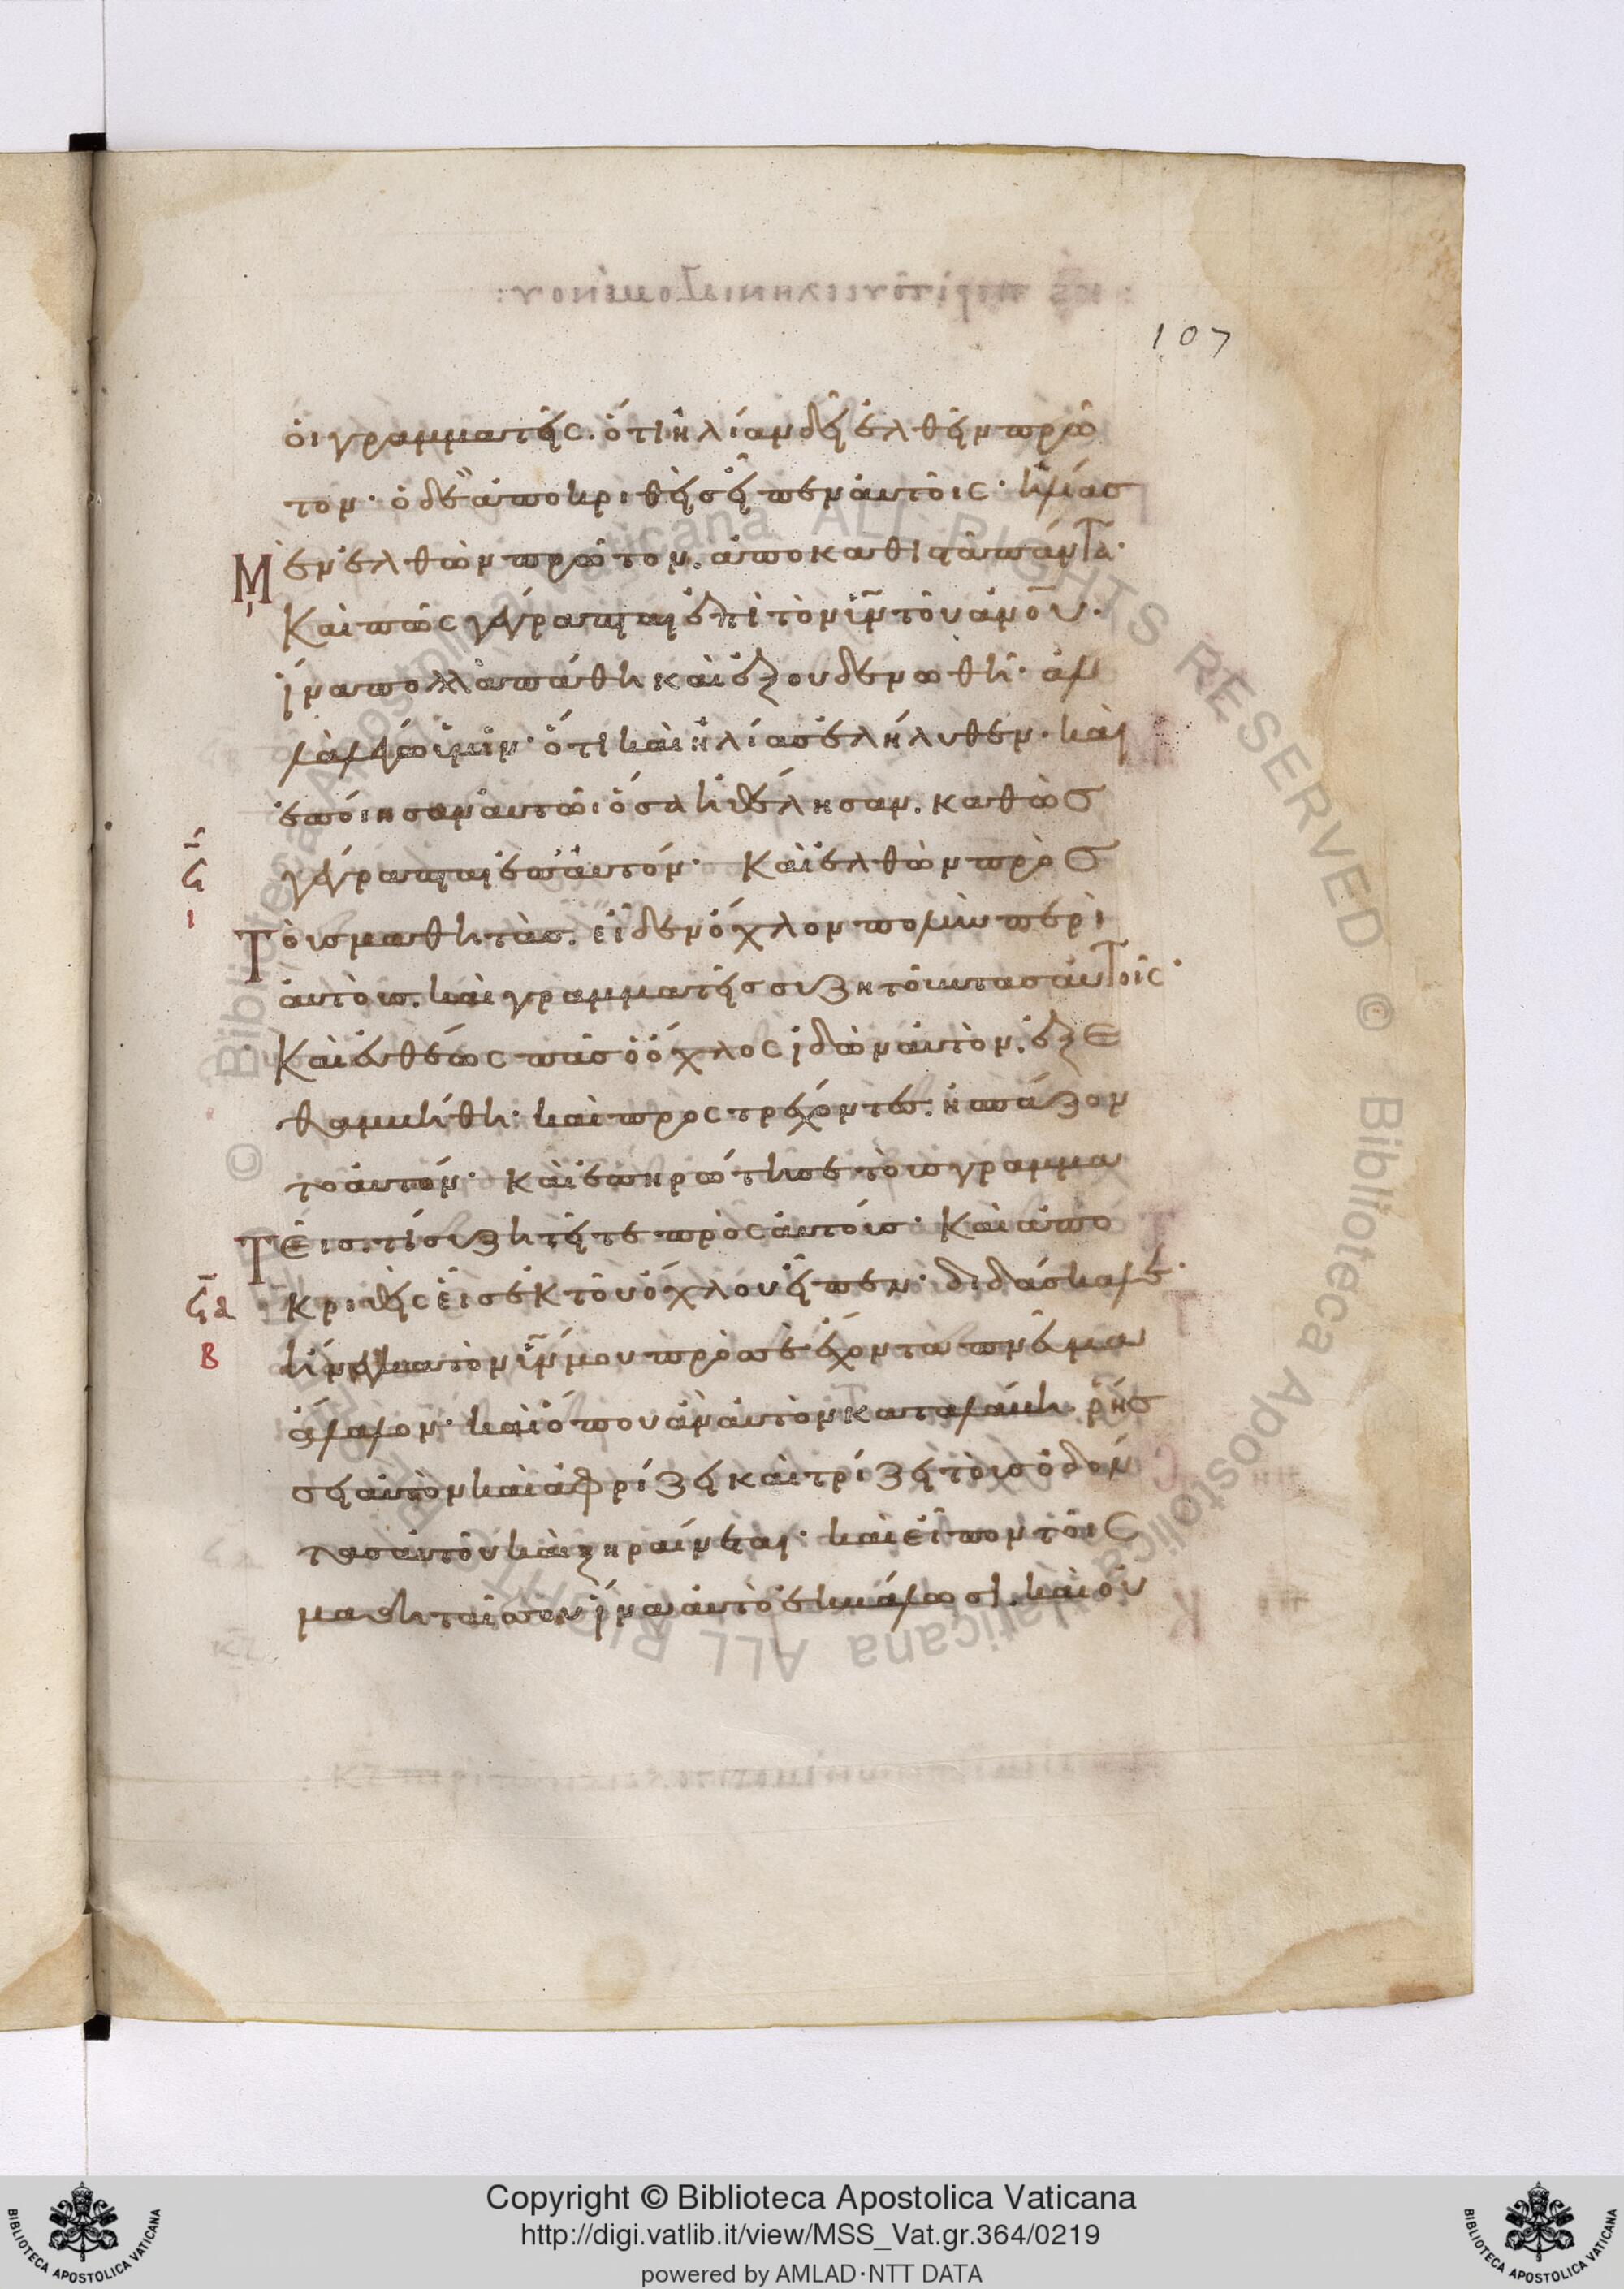 107
οἱ γραμματεῖς. ὅτι ἠλίαν δεῖ ἐλθεῖν πρῶ
τον· ὁ δὲ ἀποκριθεὶς εἶπεν αὐτοῖς· ἠλίας
μὲν ἐλθὼν πρῶτον. ἀποκαθιστᾷ πάντα·
Καὶ πῶς γέγραπται ἐπὶ τὸν υ̅ν̅ τοῦ ἀν̅ο̅υ̅·
ἵνα πολλὰ πάθη καὶ ἐξουδενωθῆ· ἀλ
λὰ λέγω ὑμῖν· ὅτι καὶ ἠλίας ἐλήλυθεν· καὶ
ἐποίησαν αὐτῶ ὅσα ἠθέλησαν. καθὼς
γέγραπται ἐπ' αὐτόν· Καὶ ἐλθὼν πρὸς
Τοὺς μαθητὰς. εἶδεν ὄχλον πολὺν περὶ
αὐτοὺς. καὶ γραμματεῖς συζητοῦντας αὐτοῖς·
Καὶ εὐθέως πᾶς ὁ ὄχλος ἰδὼν αὐτὸν. ἐξε
θαμβήθη· καὶ προστρέχοντες. ἠσπάζον
το αὐτόν· καὶ ἐπηρώτησε τοὺς γραμμα
Τεῖς. τί συζητεῖτε πρὸς αὐτούς· Καὶ ἀπο
κριθεὶς εἷς ἐκ τοῦ ὄχλου εἶπεν· διδάσκαλε·
ἤνεγκα τὸν υ̅ν̅ μου πρὸς σὲ ἔχοντα πν̅ε̅υμα
ἄλαλον· καὶ ὅπου ἂν αὐτὸν καταλάβη. ῥήσ
σει αὐτὸν καὶ ἀφρίζει καὶ τρίζει τοὺς ὀδόν
τας αὐτοῦ καὶ ξηραίνεται· καὶ εἶπον τοῖς
μαθηταῖς σου ἵνα αὐτὸ ἐκβάλωσι. καὶ οὐ
Copyright © Biblioteca Apostolica Vaticana
http://digi.vatlib.it/view/MSS_Vat.gr.364/0219
powered by AMLAD·NTT DATA
BIBLIOTECA APOSTOLICA VATICANA
BIBLIOTECA APOSTOLICA VATICANA